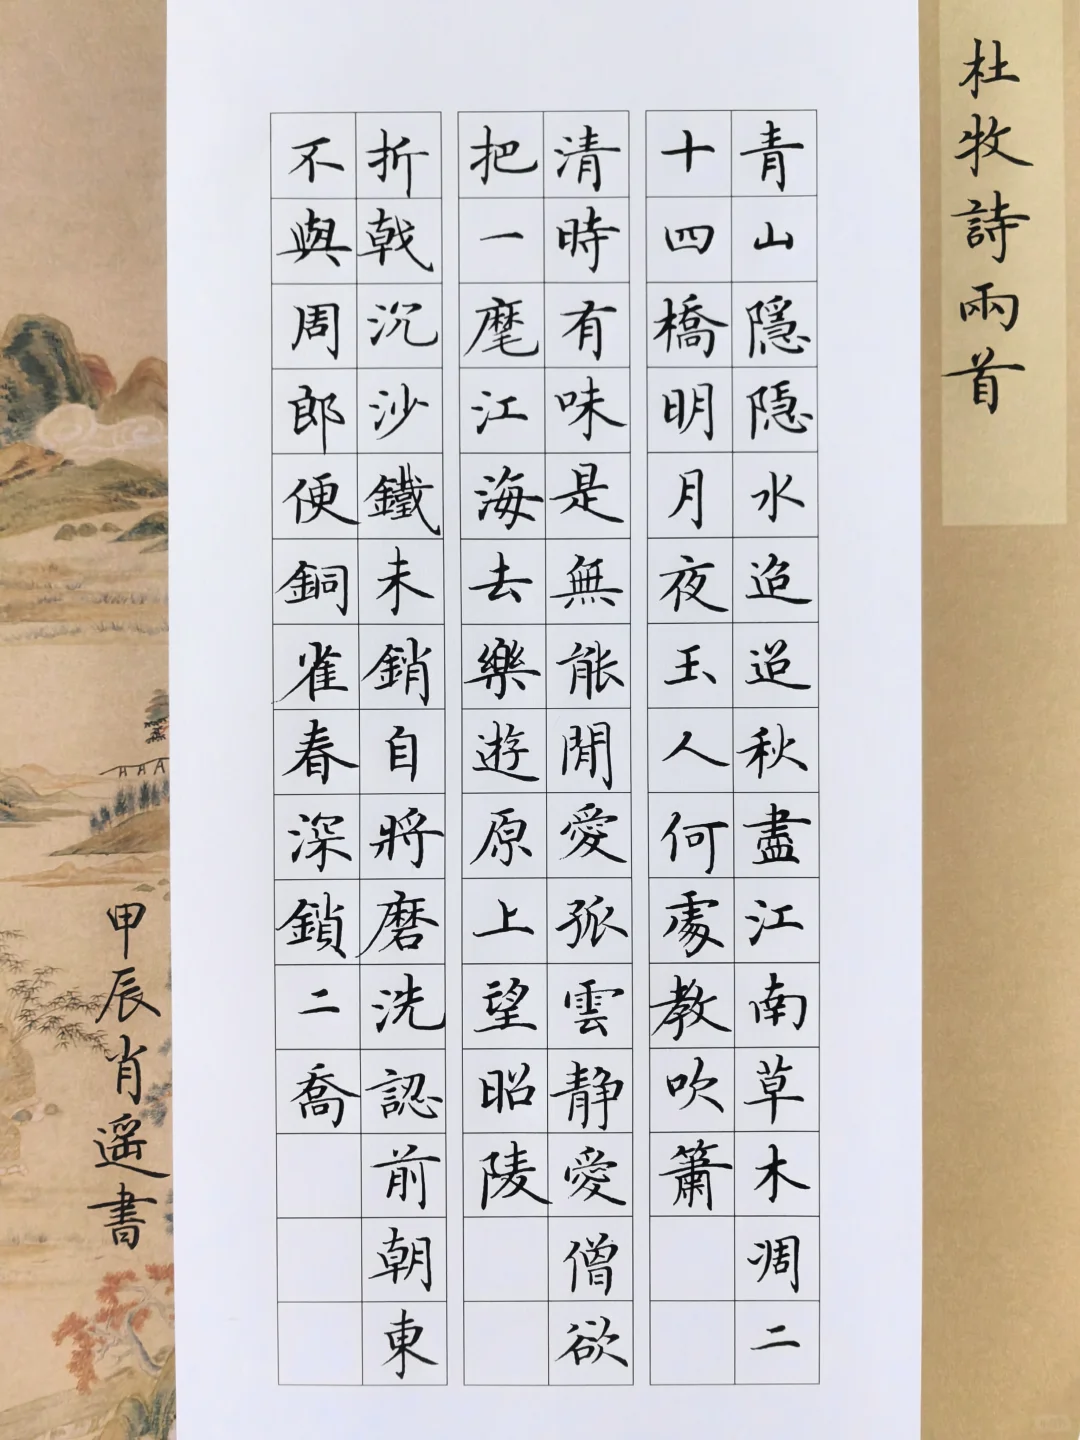 杜牧詩兩首
青山隱隐水迢迢秋盡江南草木凋二
十四橋明月夜玉人何處教吹簫
清時有味是無能閒愛孤雲静愛僧欲
把一麾江海去樂遊原上望昭陵
折戟沉沙鐵未銷自將磨洗認前朝東
不與周郎便銅雀春深鎖二喬
甲辰肖遥書